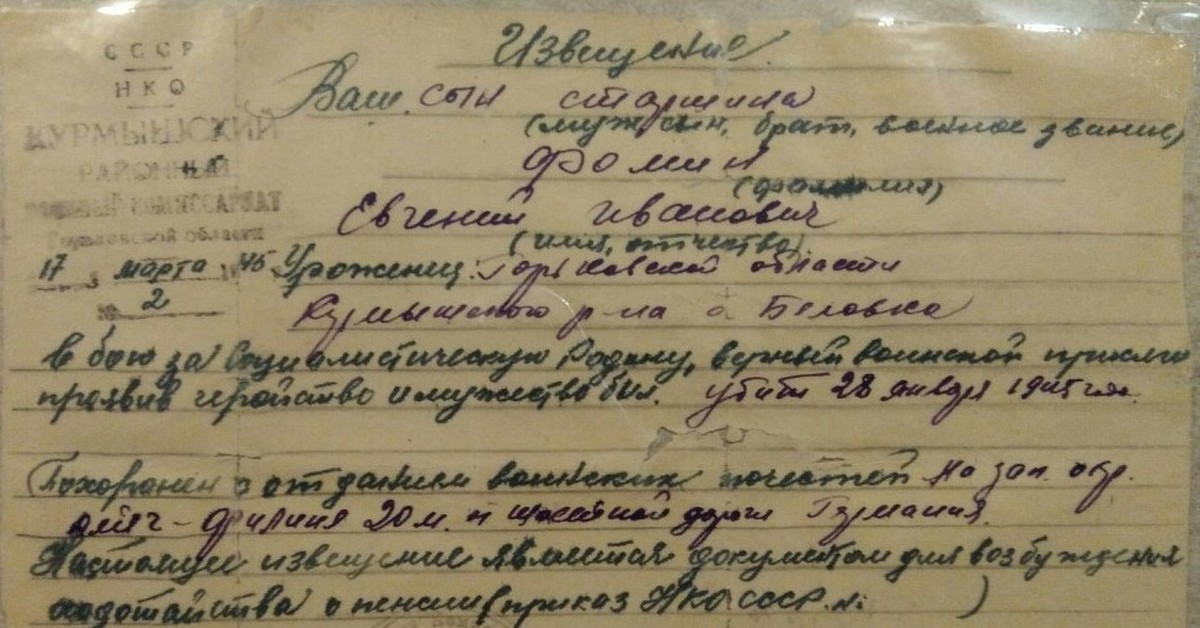 СССР
НКО
КУРМЫШСКИЙ
РАЙОННЫЙ
ВОЕННЫЙ КОМИССАРИАТ
Горьковской области
17 марта 1945
№ 2
Извещение
Ваш сын старшина
(муж, сын, брат, военное звание)
Фомин
(фамилия)
Евгений Иванович
(имя, отчество)
Уроженец: Горьковской области
Курмышского р-на с Беловка
в бою за Социалистическую Родину, верный воинской присяге
проявив геройство и мужество был. убит 28 января 1945 г.
Похоранен с отданием воинских почестей на зап. окр.
20 м. от шоссейной дороги Германия.
Настоящее извещение является документом для возбуждения
ходотайства о пенсии (приказ НКО СССР. №: )